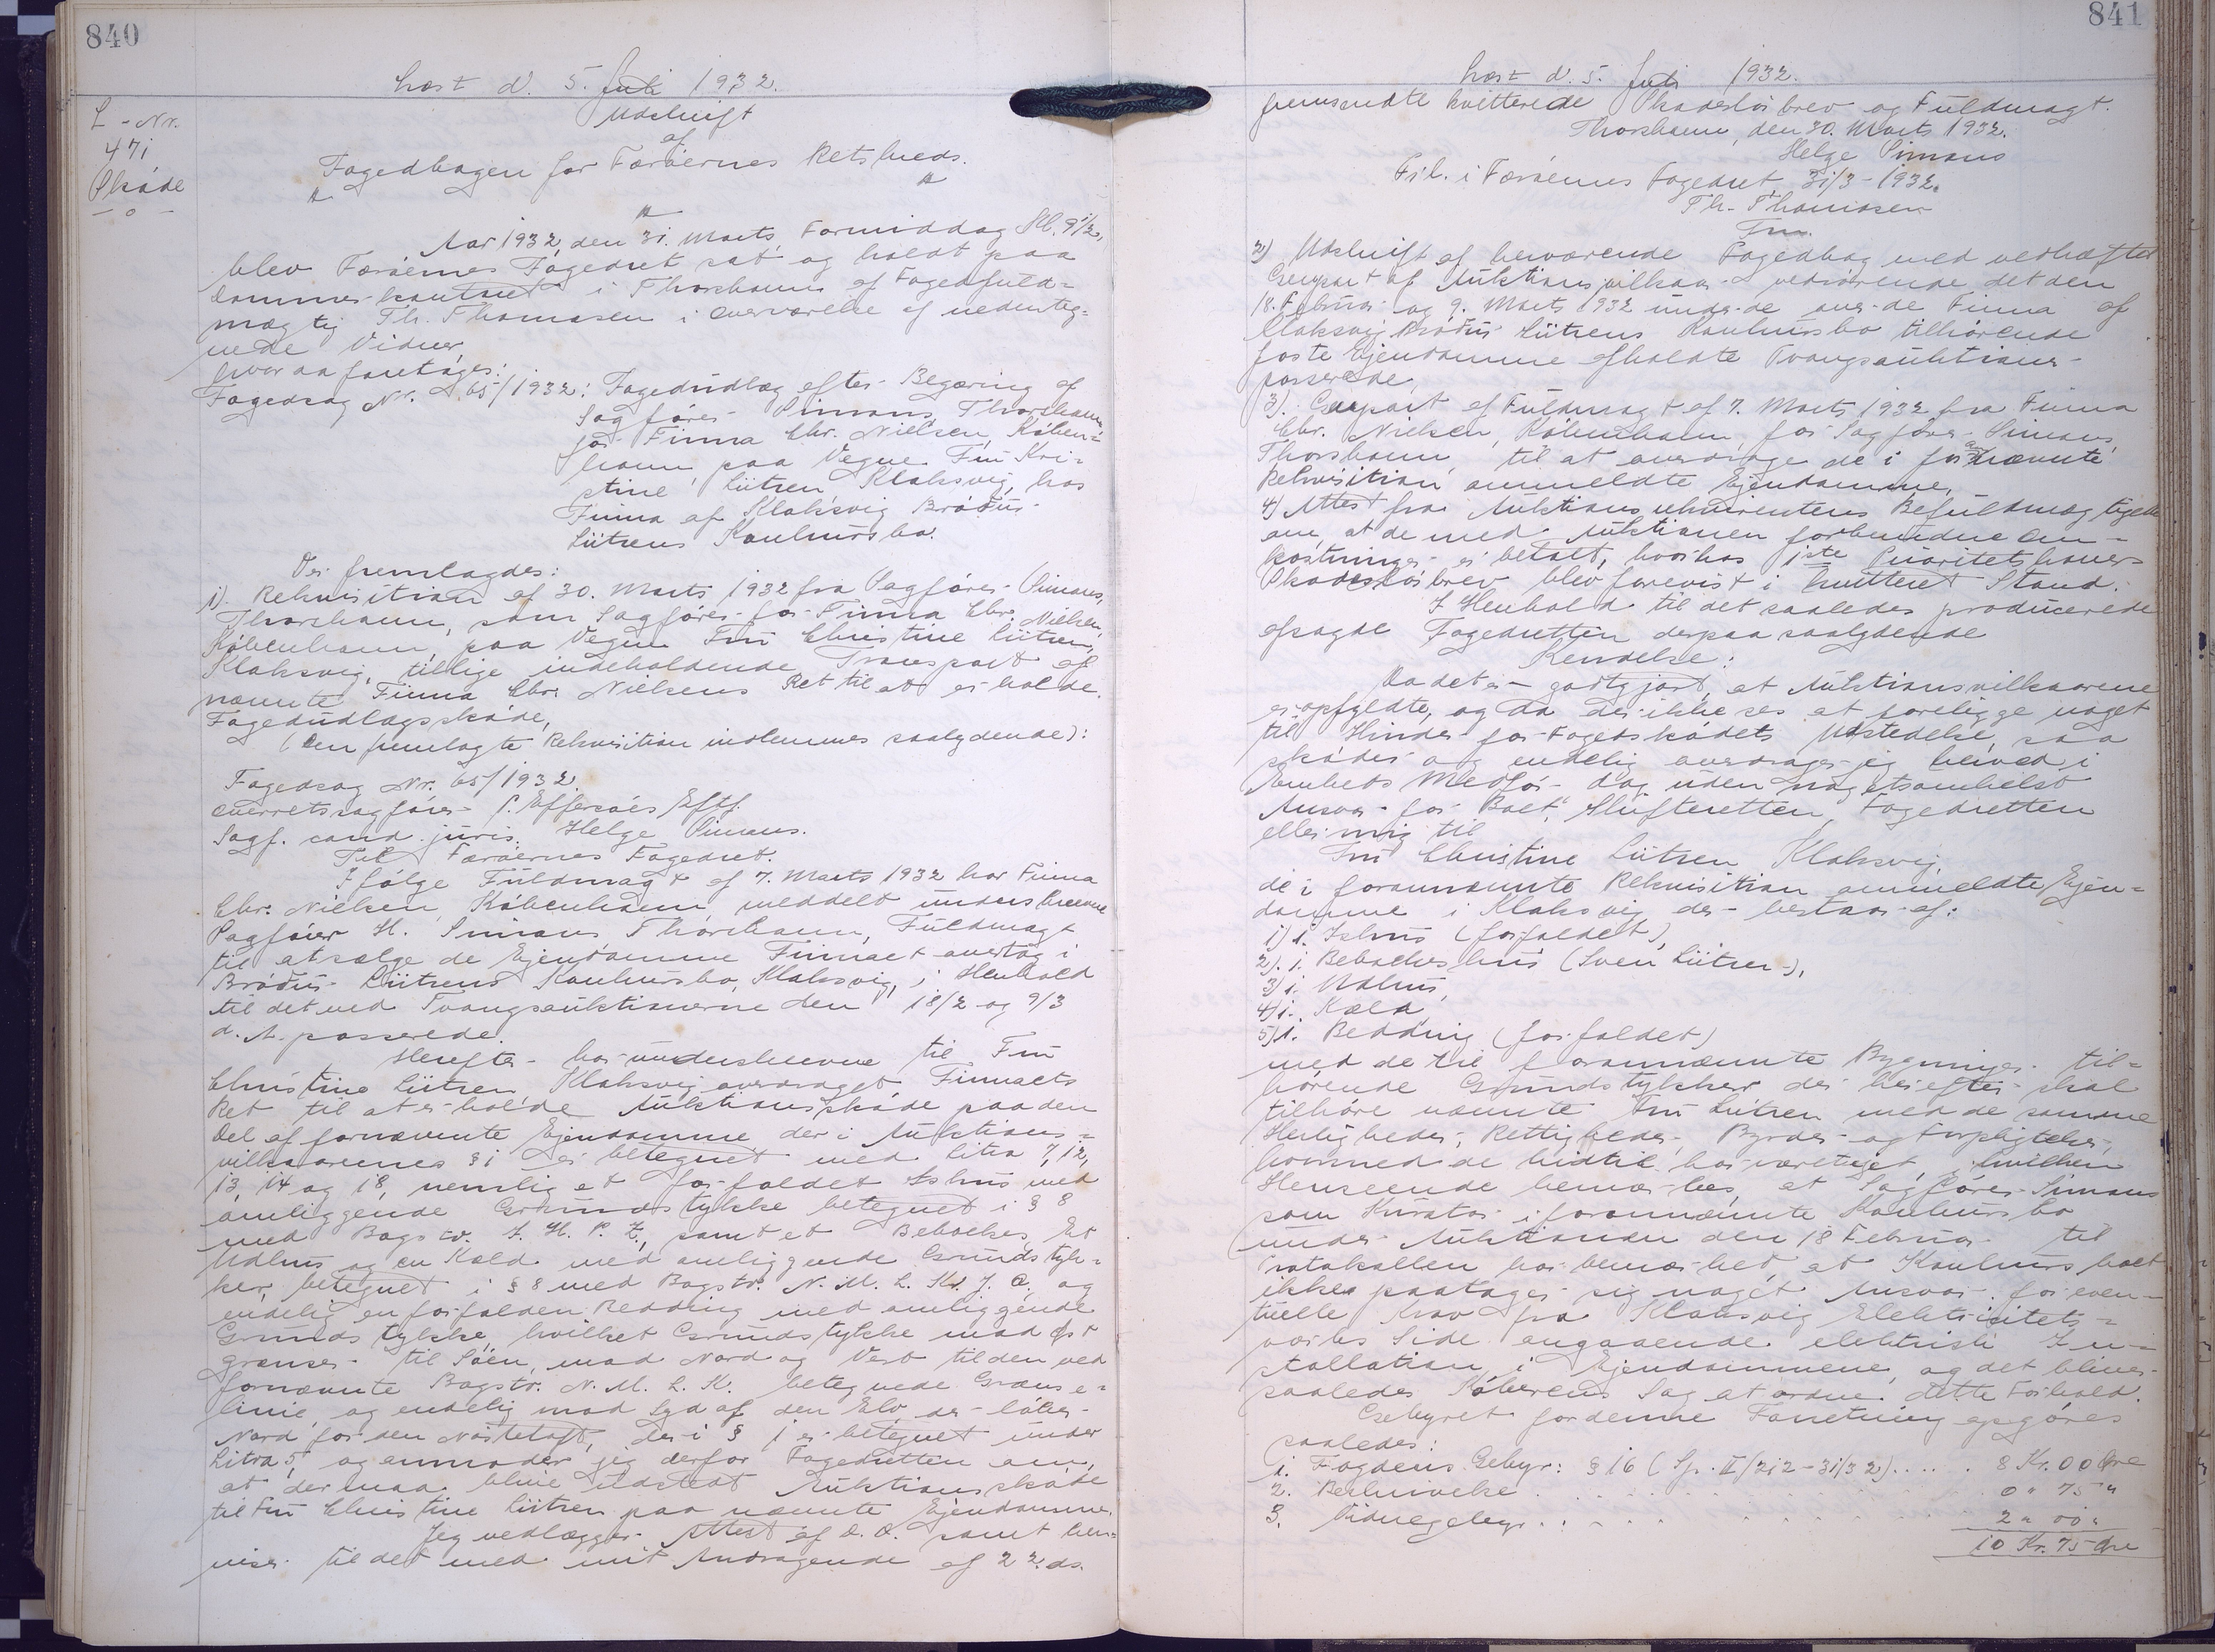 840
Læst d. 5. Juli 1932.
L-Nr.
471
Skøde
Udskrift
af
Fogedbogen for Færøernes Retskreds.
Aar 1932, den 31. Marts, Formiddag Kl. 9½,
blev Færøernes Fogedret sat og holdt paa
Dommerkontoret i Thorshavn af Fogedfuld-
mægtig Th. Thomasen i Overværelse af undenteg-
nede Vidner,
hvoraa foretoges:
Fogedsag Nr. 65/1932: Fogedudlæg efter Begæring af
Sagfører Simans, Thorshavn,
for Firma Chr. Nielsen, Køben-
havn paa Vegne Fru Kri-
stine Lützen Klaksvig, hos
Firma af Klaksvig Brødr.
Lützens Konkursbo.
Der fremlagdes:
1). Rekvisition af 30. Marts 1932 fra Sagfører Simans,
Thorshavn, som Sagfører for Firma Chr. Nielsen,
København, paa Vegne Fru Christine Lützen,
Klaksvig, tillige indeholdende Transport af
nævnte Firma Chr. Nielsens Ret til at erholde
Fogedudlægsskøde,
(Den fremlagte Rekvisition indlemmes saalydende):
Fogedsag Nr. 65/1932.
Overretssagfører P. Effersøes Eftf.
Sagf. cand. juris. Helge Simans.
Til Færøernes Fogedret.
Ifølge Fuldmagt af 7. Marts 1932 har Firma
Chr. Nielsen, København meddelt underskrevne
Sagfører H. Simans, Thorshavn, Fuldmagt
til at sælge de Ejendomme Firmaet overtog i
Brødr. Lützens Konkursbo, Klaksvig, i Henhold
til det ved Tvangsauktionerne den 18/2 og 9/3
d. A. passerede.
Herefter har underskrevne til Fru
Christine Lützen Klaksvig overdraget Firmaets
Ret til at erholde Auktionsskøde paa den
Del af fornævnte Ejendomme der i Auktions-
vilkaarenes § 1 er betegnet med Litra 7, 12,
13, 14 og 18, nemlig et forfaldet Ishus med
omliggende Grundstykke betegnet i § 8
med Bogstv. I. H. P. Z., samt et Beboelses, Et
Udhus og en Kæld med omliggende Grundstyk-
ker, betegnet i § 8 med Bogstv. N. M. L. K. J. O. og
endelig en forfalden Bedding med omliggende
Grundstykke, hvilket Grundstykke mod Øst
grænser til Søen, mod Nord og Vest til den ved
fornævnte Bogstv. N. M. L. K. betegnede Grænse-
linie, og endelig mod Syd af den Elv, der løber
Nord for den Nøstetoft, der i § 1 er betegnet under
Litra 5, og anmoder jeg derfor Fogedretten om,
at der maa blive udstedt Auktionsskøde
til Fru Christine Lützen paa nævnte Ejendomme.
Jeg vedlægger Attest af D. D. samt hen-
viser til det med mit Andragende af 22. ds.
841
Læst d. 5. Juli 1932.
fremsendte kvitterede Skadesløsbrev og Fuldmagt.
Thorshavn, den 30. Marts 1932.
Helge Simans
Frl. i Færøernes Fogedret 31/3-1932.
Th. Thomasen
Fm.
2) Udskrift af herværende Fogedbog med vedhæftet
Genpart af Auktionsvilkaar vedrørende det den
18. Februar og 9. Marts 1932 under de over de Firma af
Klaksvig Brødr. Lützens Konkursbo tilhørende
faste Ejendomme afholdte Tvangsauktioner
passerede,
3). Genpart af Fuldmagt af 7. Marts 1932 fra Firma
Chr. Nielsen, København, for Sagfører Simans,
Thorshavn til at overdrage de i forannævnte
Rekvisition ommeldte Ejendomme,
4) Attest fra Auktionsrekvirentens Befuldmægtigede
om, at de med Auktionen forbundne Om-
kostninger er betalt, hvorhos 1ste Prioritetshavers
Skadesløsbrev blev forevist i kvitteret Stand.
I Henhold til det saaledes producerede
afsagde Fogedretten derpaa saalydende
Kendelse:
Da det er godtgjort, at Auktionsvilkaarene
er opfyldte, og da der ikke ses at foreligge noget
til Hinder for Fogedskødets Udstedelse, saa
skøder og endelig overdrager jeg herved i
Embeds Medfør dog uden nogetsomhelst
Ansvar for Boet, Skifteretten, Fogedretten
eller mig til
Fru Christine Lützen, Klaksvig,
de i forannævnte Rekvisition ommeldte Ejen-
domme i Klaksvig der bestaar af:
1) 1. Ishus (forfaldet),
2). 1. Beboelseshus (Sven Lützen),
3) 1. Udhus,
4) 1. Kæld,
5) 1. Bedding (forfaldet)
med de til forannævnte Bygninger til-
hørende Grundstykker der herefter skal
tilhøre nævnte Fru Lützen med de samme
Herligheder, Rettigheder, Byrder og Forpligtelser,
hvormed de hidtil har været ejet, i hvilken
Henseende bemærkes, at Sagfører Simans
som Kurator i forannævnte Konkursbo
under Auktionen den 18 Februar til
Protokollen har bemærket, at Konkursboet
ikke paatager sig noget Ansvar for even-
tuelle Krav fra Klaksvig Elektricitets-
værks Side angaaende elektrisk In-
stallation i Ejendommene, og det bliver
saaledes Køberens Sag at ordne dette Forhold.
Gebyret for denne Forretning opgøres
saaledes:
1. Fogdens Gebyr: § 16 (Sp. II/212-31/32) .... 8 Kr. 00 Øre
2. Beskrivelse . . . . 0 " 75 "
3. Vidnegebyr . . . . 2 " 00 "
10 Kr. 75 Øre